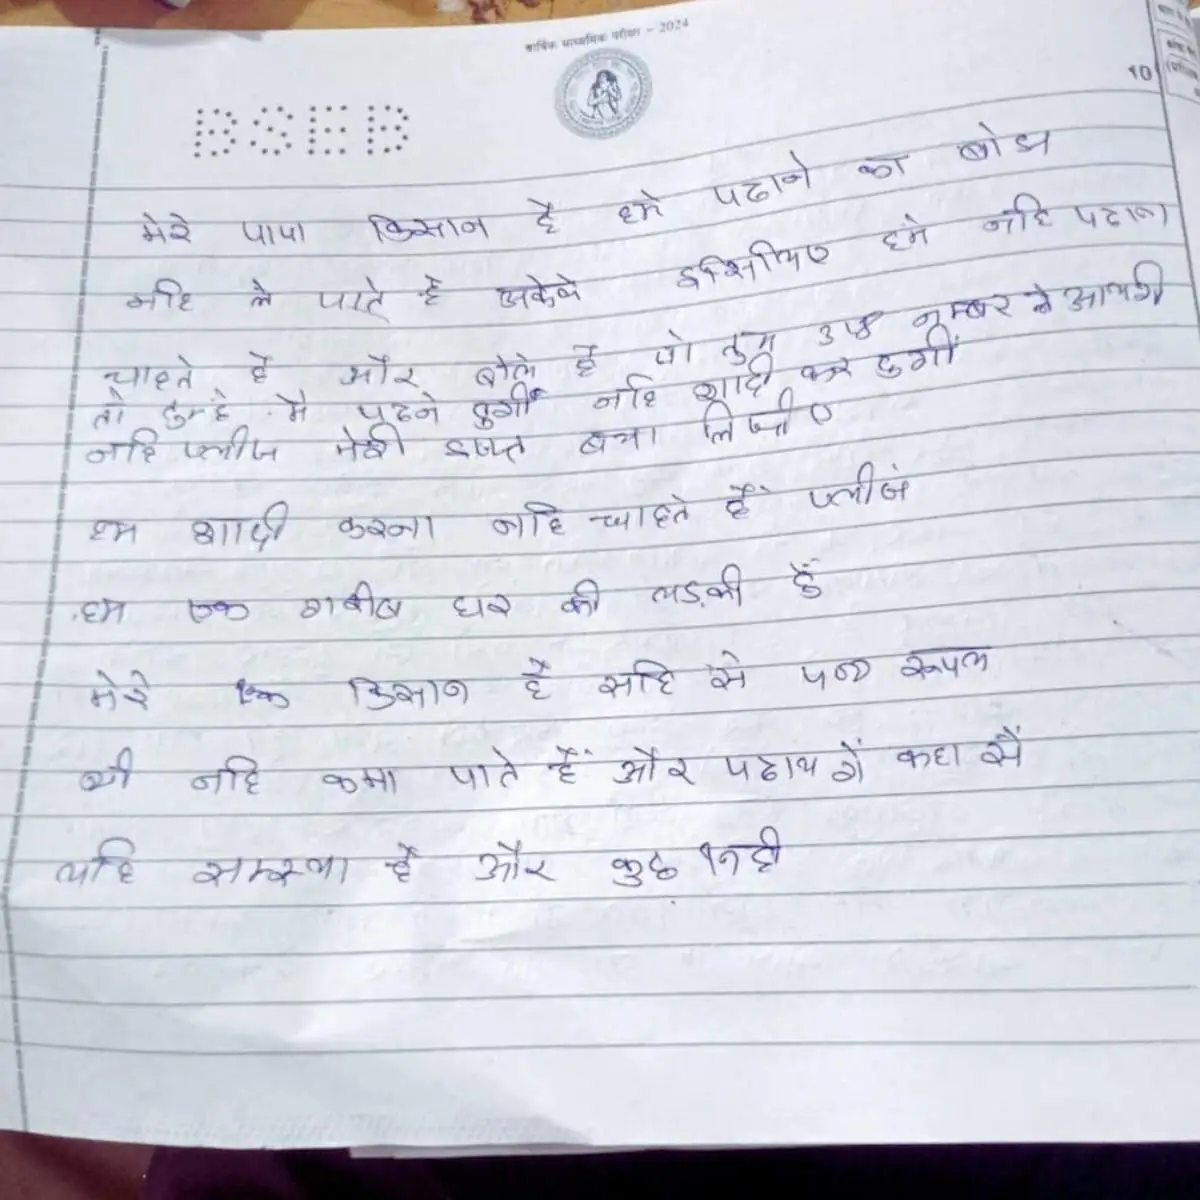 वार्षिक माध्यमिक परीक्षा - 2024
BSEB
10
मेरे पापा किसान है हमे पढाने का बोझ
नहि ले पाते है इसिलिए हमे नहि पढाना
चाहते है और बोले है जो तुम नम्बर ले आयगी
तो तुम्हे मै पढने दुगीं नहि शादी कर दुगीं
नहि प्लीज मेरी इज्जत बचा लिजीए
हम शादी करना नहि चाहते हैं प्लीजं
हम एक गरीब घर की लड़की हैं
मेरे एक किसान है सहि से रूपया
भी नहि कमा पाते हैं और पढाय गें कहा सें
यहि समस्या है और कुछ नही